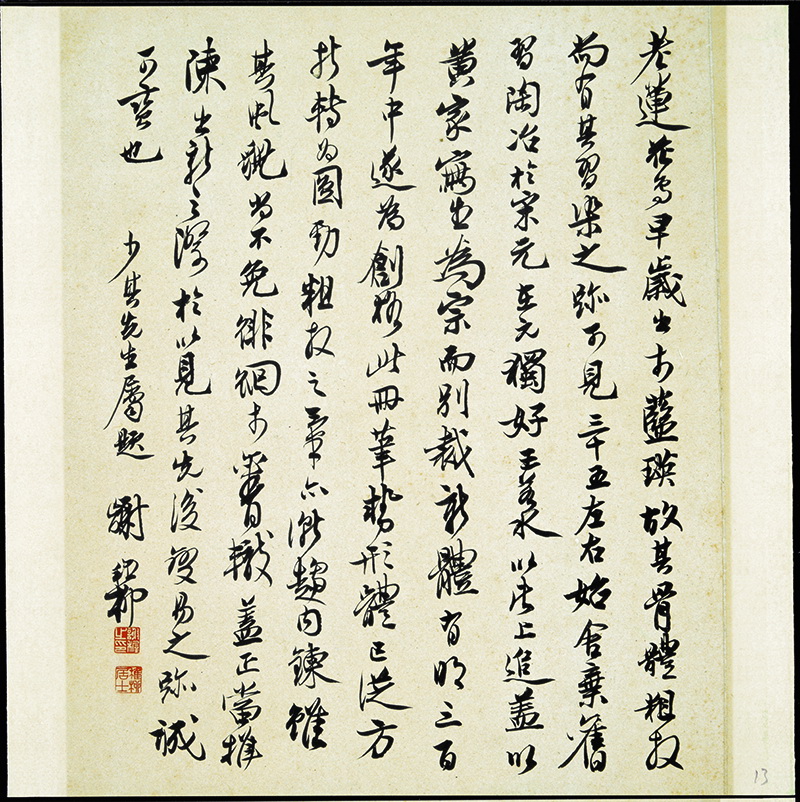 老蓮花鳥早歲出於藍瑛故其骨體粗放
尚有其習染之跡可見三十五左右始舍棄舊
習陶冶於宋元在元獨好王若水以此上追蓋以
黃家寫生為宗而別裁新體有明三百
年中遂為創格此冊筆勢形體已從方
折轉為圓勁粗放之筆亦漸趨內鍊雖
其風貌尚不免徘徊於舊轍蓋正當推
陳出新之際於以見其先後變易之跡誠
可寶也
少其先生屬題
謝稚柳
13